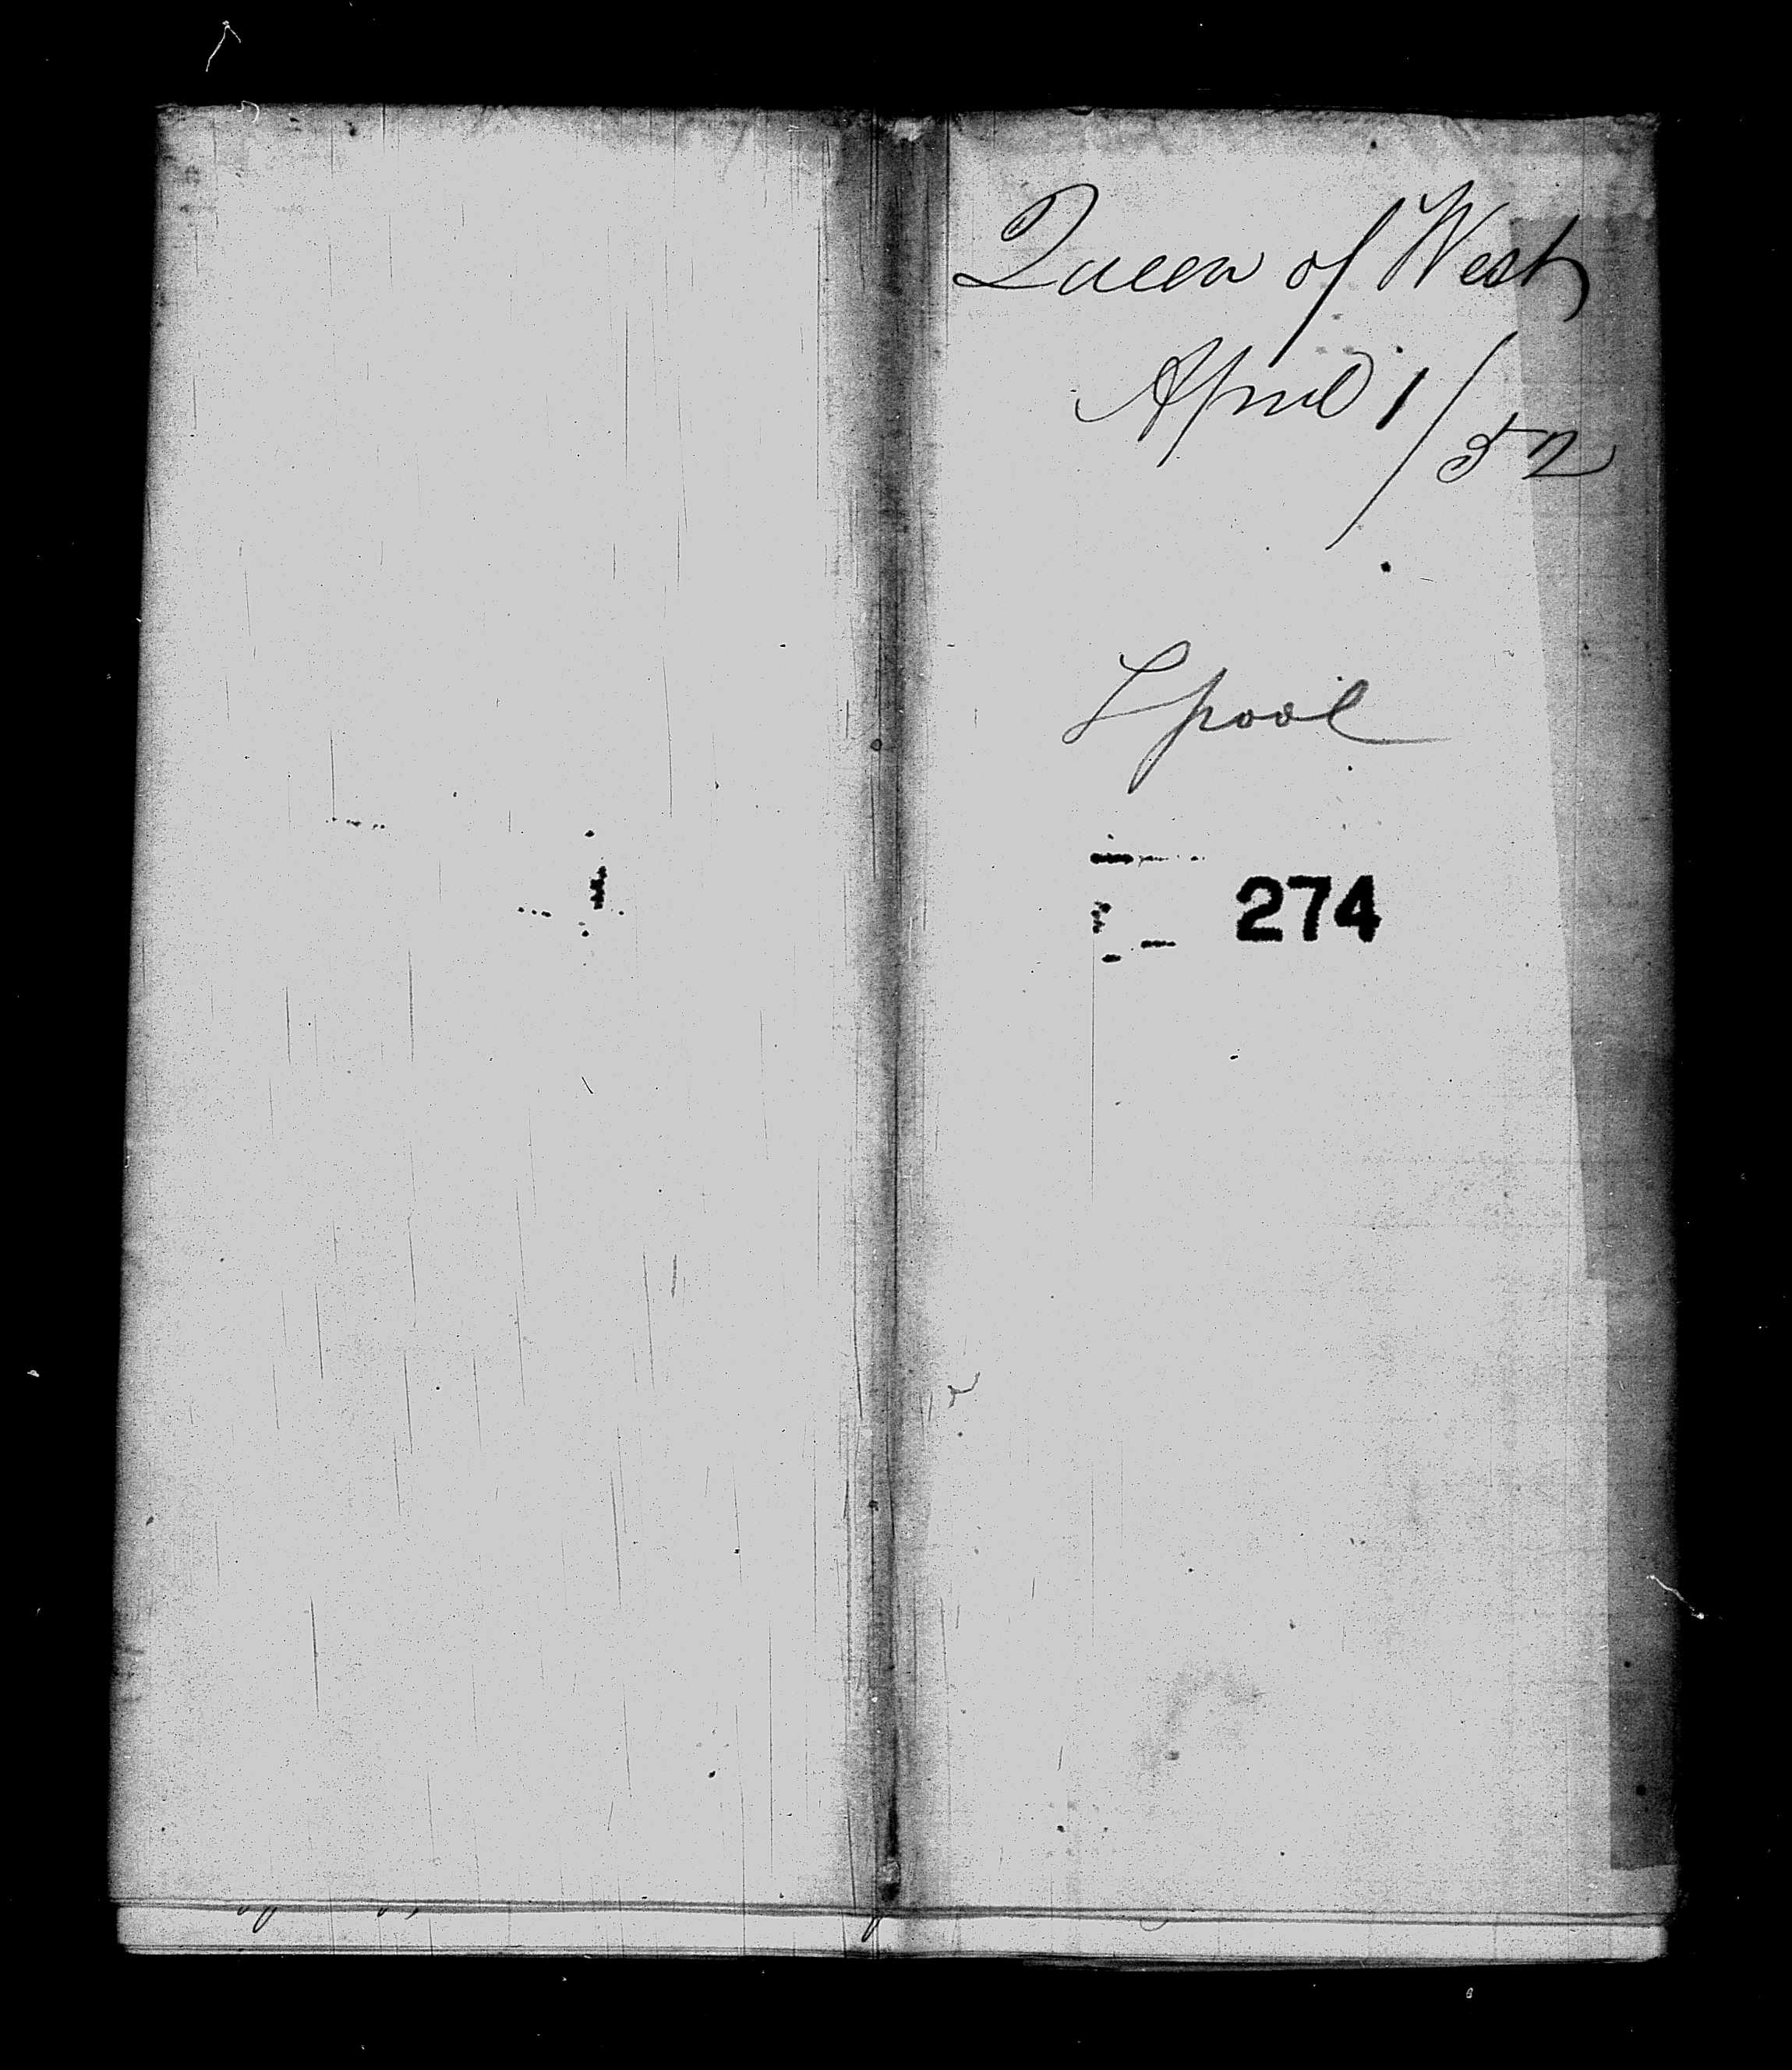 Queen of West
April 1/52
Lpool
274